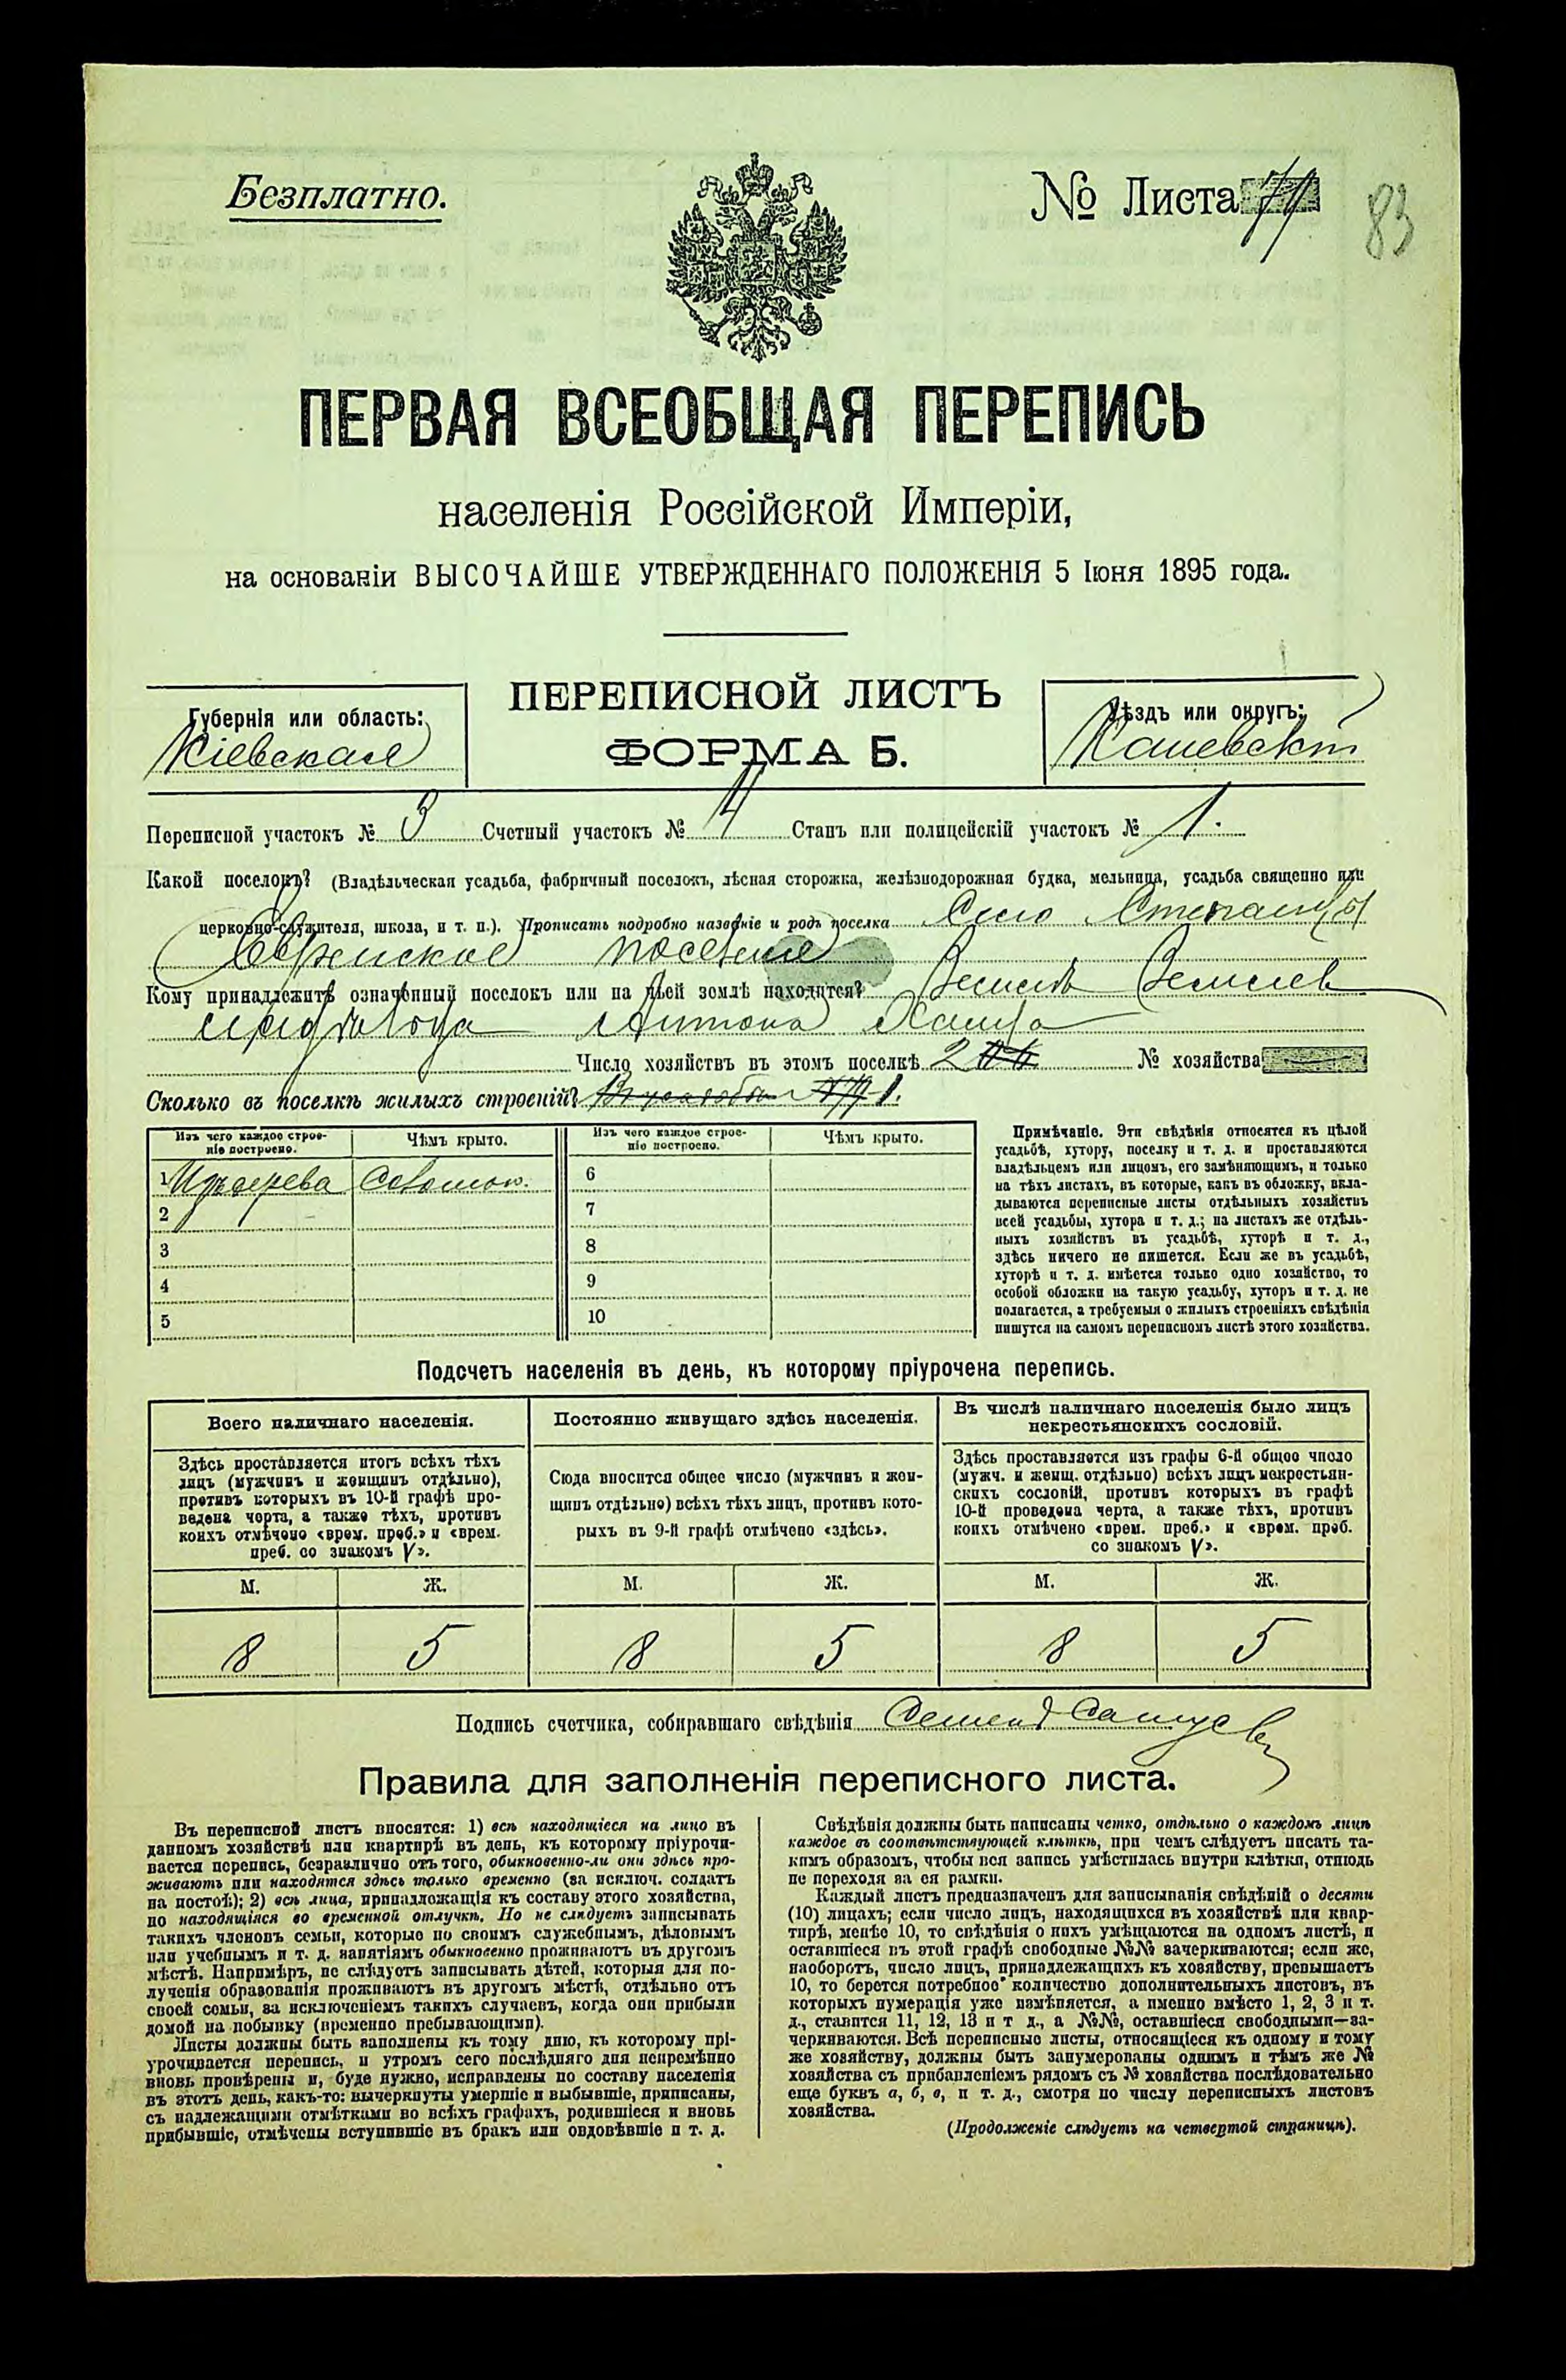 Безплатно.
№ Листа 79
83
ПЕРВАЯ ВСЕОБЩАЯ ПЕРЕПИСЬ
населенія Россійской Имперіи,
на основаніи ВЫСОЧАЙШЕ УТВЕРЖДЕННАГО ПОЛОЖЕНІЯ 5 Іюня 1895 года.
Губернія или область:
Кіевская
ПЕРЕПИСНОЙ ЛИСТЪ
ФОРМА Б.
Уѣздъ или округъ:
Каневскій
Переписной участокъ № 3 Счетный участокъ № 4 Станъ или полицейскій участокъ № 1.
Какой поселокъ? (Владѣльческая усадьба, фабричный поселокъ, лѣсная сторожка, желѣзнодорожная будка, мельница, усадьба священно или
церковно-служителя, школа, и т. п.). Прописать подробно названіе и родъ поселка Село Степанцы
Еврейское поселеніе
Кому принадлежитъ означенный поселокъ или на чьей землѣ находится?
Антона
Число хозяйствъ въ этомъ поселкѣ 2 № хозяйства
Сколько въ поселкѣ жилыхъ строеній? 1.
Изъ чего каждое строеніе построено.
Чѣмъ крыто.
Изъ чего каждое строеніе построено.
Чѣмъ крыто.
1 Изъ дерева Соломою.
2
3
4
5
6
7
8
9
10
Примѣчаніе. Эти свѣдѣнія относятся къ цѣлой
усадьбѣ, хутору, поселку и т. д. и проставляются
владѣльцемъ или лицомъ, его замѣняющимъ, и только
на тѣхъ листахъ, въ которые, какъ въ обложку, вкла-
дываются переписные листы отдѣльныхъ хозяйствъ
всей усадьбы, хутора и т. д.; на листахъ же отдѣль-
ныхъ хозяйствъ въ усадьбѣ, хуторѣ и т. д.,
здѣсь ничего не пишется. Если же въ усадьбѣ,
хуторѣ и т. д. имѣется только одно хозяйство, то
особой обложки на такую усадьбу, хуторъ и т. д. не
полагается, а требуемыя о жилыхъ строеніяхъ свѣдѣнія
пишутся на самомъ переписномъ листѣ этого хозяйства.
Подсчетъ населенія въ день, къ которому пріурочена перепись.
Всего наличнаго населенія.
Здѣсь проставляется итогъ всѣхъ тѣхъ
лицъ (мужчинъ и женщинъ отдѣльно),
противъ которыхъ въ 10-й графѣ про-
ведена черта, а также тѣхъ, противъ
коихъ отмѣчено «врем. преб.» и «врем.
преб. со знакомъ V».
М. Ж.
8 5
Постоянно живущаго здѣсь населенія.
Сюда вносится общее число (мужчинъ и жен-
щинъ отдѣльно) всѣхъ тѣхъ лицъ, противъ кото-
рыхъ въ 9-й графѣ отмѣчено «здѣсь».
М. Ж.
8 5
Въ числѣ наличнаго населенія было лицъ
некрестьянскихъ сословій.
Здѣсь проставляется изъ графы 6-й общее число
(мужч. и женщ. отдѣльно) всѣхъ лицъ некрестьян-
скихъ сословій, противъ которыхъ въ графѣ
10-й проведена черта, а также тѣхъ, противъ
коихъ отмѣчено «врем. преб.» и «врем. преб.
со знакомъ V».
М. Ж.
8 5
Подпись счетчика, собиравшаго свѣдѣнія
Правила для заполненія переписного листа.
Въ переписной листъ вносятся: 1) всѣ находящіеся на лицо въ
данномъ хозяйствѣ или квартирѣ въ день, къ которому пріурочи-
вается перепись, безразлично отъ того, обыкновенно-ли они здѣсь про-
живаютъ или находятся здѣсь только временно (за исключ. солдатъ
на постоѣ); 2) всѣ лица, принадлежащія къ составу этого хозяйства,
но находящіяся во временной отлучкѣ. Но не слѣдуетъ записывать
такихъ членовъ семьи, которые по своимъ служебнымъ, дѣловымъ
или учебнымъ и т. д. занятіямъ обыкновенно проживаютъ въ другомъ
мѣстѣ. Напримѣръ, не слѣдуетъ записывать дѣтей, которыя для по-
лученія образованія проживаютъ въ другомъ мѣстѣ, отдѣльно отъ
своей семьи, за исключеніемъ такихъ случаевъ, когда они прибыли
домой на побывку (временно пребывающими).
Листы должны быть заполнены къ тому дню, къ которому прі-
урочивается перепись, и утромъ сего послѣдняго дня непремѣнно
вновь провѣрены и, буде нужно, исправлены по составу населенія
въ этотъ день, какъ-то: вычеркнуты умершіе и выбывшіе, приписаны,
съ надлежащими отмѣтками во всѣхъ графахъ, родившіеся и вновь
прибывшіе, отмѣчены вступившіе въ бракъ или овдовѣвшіе и т. д.
Свѣдѣнія должны быть написаны четко, отдѣльно о каждомъ лицѣ
каждое въ соотвѣтствующей клѣткѣ, при чемъ слѣдуетъ писать та-
кимъ образомъ, чтобы вся запись умѣстилась внутри клѣтки, отнюдь
не переходя за ея рамки.
Каждый листъ предназначенъ для записыванія свѣдѣній о десяти
(10) лицахъ; если число лицъ, находящихся въ хозяйствѣ или квар-
тирѣ, менѣе 10, то свѣдѣнія о нихъ умѣщаются на одномъ листѣ, и
оставшіеся въ этой графѣ свободные №№ зачеркиваются; если же,
наоборотъ, число лицъ, принадлежащихъ къ хозяйству, превышаетъ
10, то берется потребное количество дополнительныхъ листовъ, въ
которыхъ нумерація уже измѣняется, а именно вмѣсто 1, 2, 3 и т.
д., ставится 11, 12, 13 и т д., а №№, оставшіеся свободными—за-
черкиваются. Всѣ переписные листы, относящіеся къ одному и тому
же хозяйству, должны быть занумерованы однимъ и тѣмъ же №
хозяйства съ прибавленіемъ рядомъ съ № хозяйства послѣдовательно
еще буквъ а, б, в, и т. д., смотря по числу переписныхъ листовъ
хозяйства.
(Продолженіе слѣдуетъ на четвертой страницѣ).